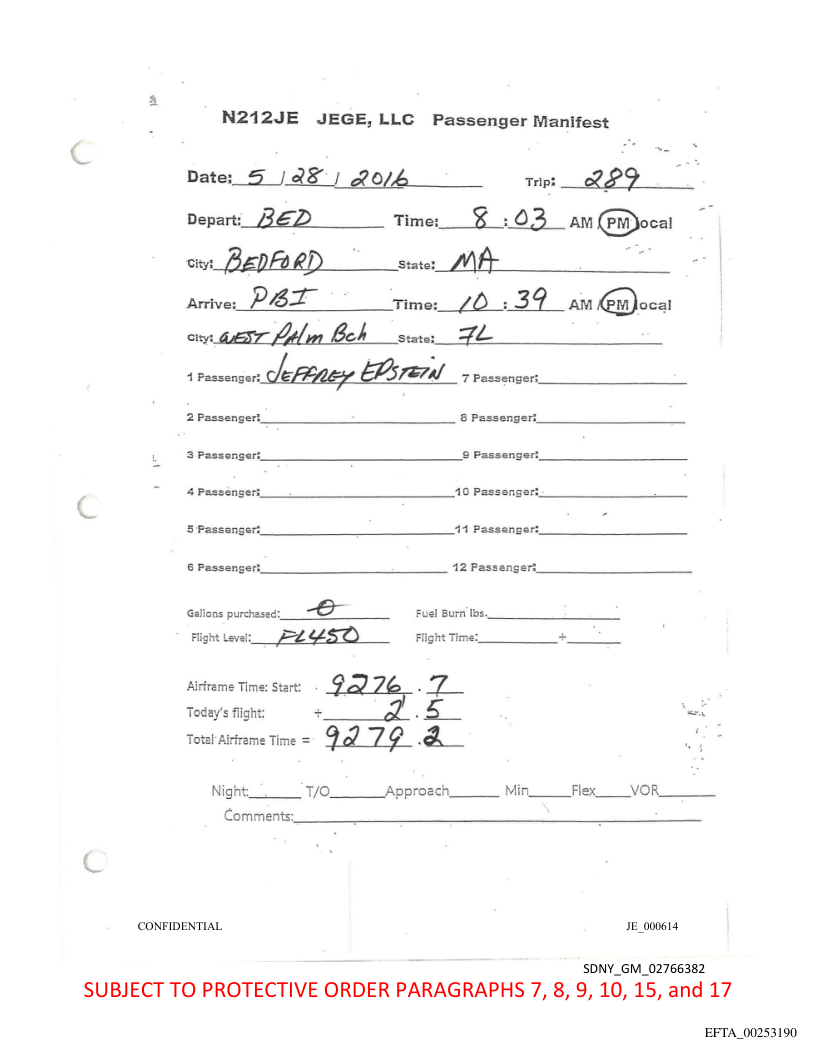 N212JE JEGE, LLC Passenger Manifest
Date: 5 / 28 / 2016 Trip: 289
Depart: BED Time: 8 : 03 AM / PM Local
City: BEDFORD State: MA
Arrive: PBI Time: 10 : 39 AM / PM Local
City: WEST PAlm Bch State: FL
1 Passenger: JEFFREY EPSTEIN 7 Passenger:
2 Passenger: 8 Passenger:
3 Passenger: 9 Passenger:
4 Passenger: 10 Passenger:
5 Passenger: 11 Passenger:
6 Passenger: 12 Passenger:
Gallons purchased: 0 Fuel Burn lbs.
Flight Level: FL450 Flight Time: ÷
Airframe Time: Start: 9276 . 7
Today's flight: + 2 . 5
Total Airframe Time = 9279 . 2
Night: T/O Approach Min Flex VOR
Comments:
CONFIDENTIAL JE_000614
SDNY_GM_02766382
SUBJECT TO PROTECTIVE ORDER PARAGRAPHS 7, 8, 9, 10, 15, and 17
EFTA_00253190